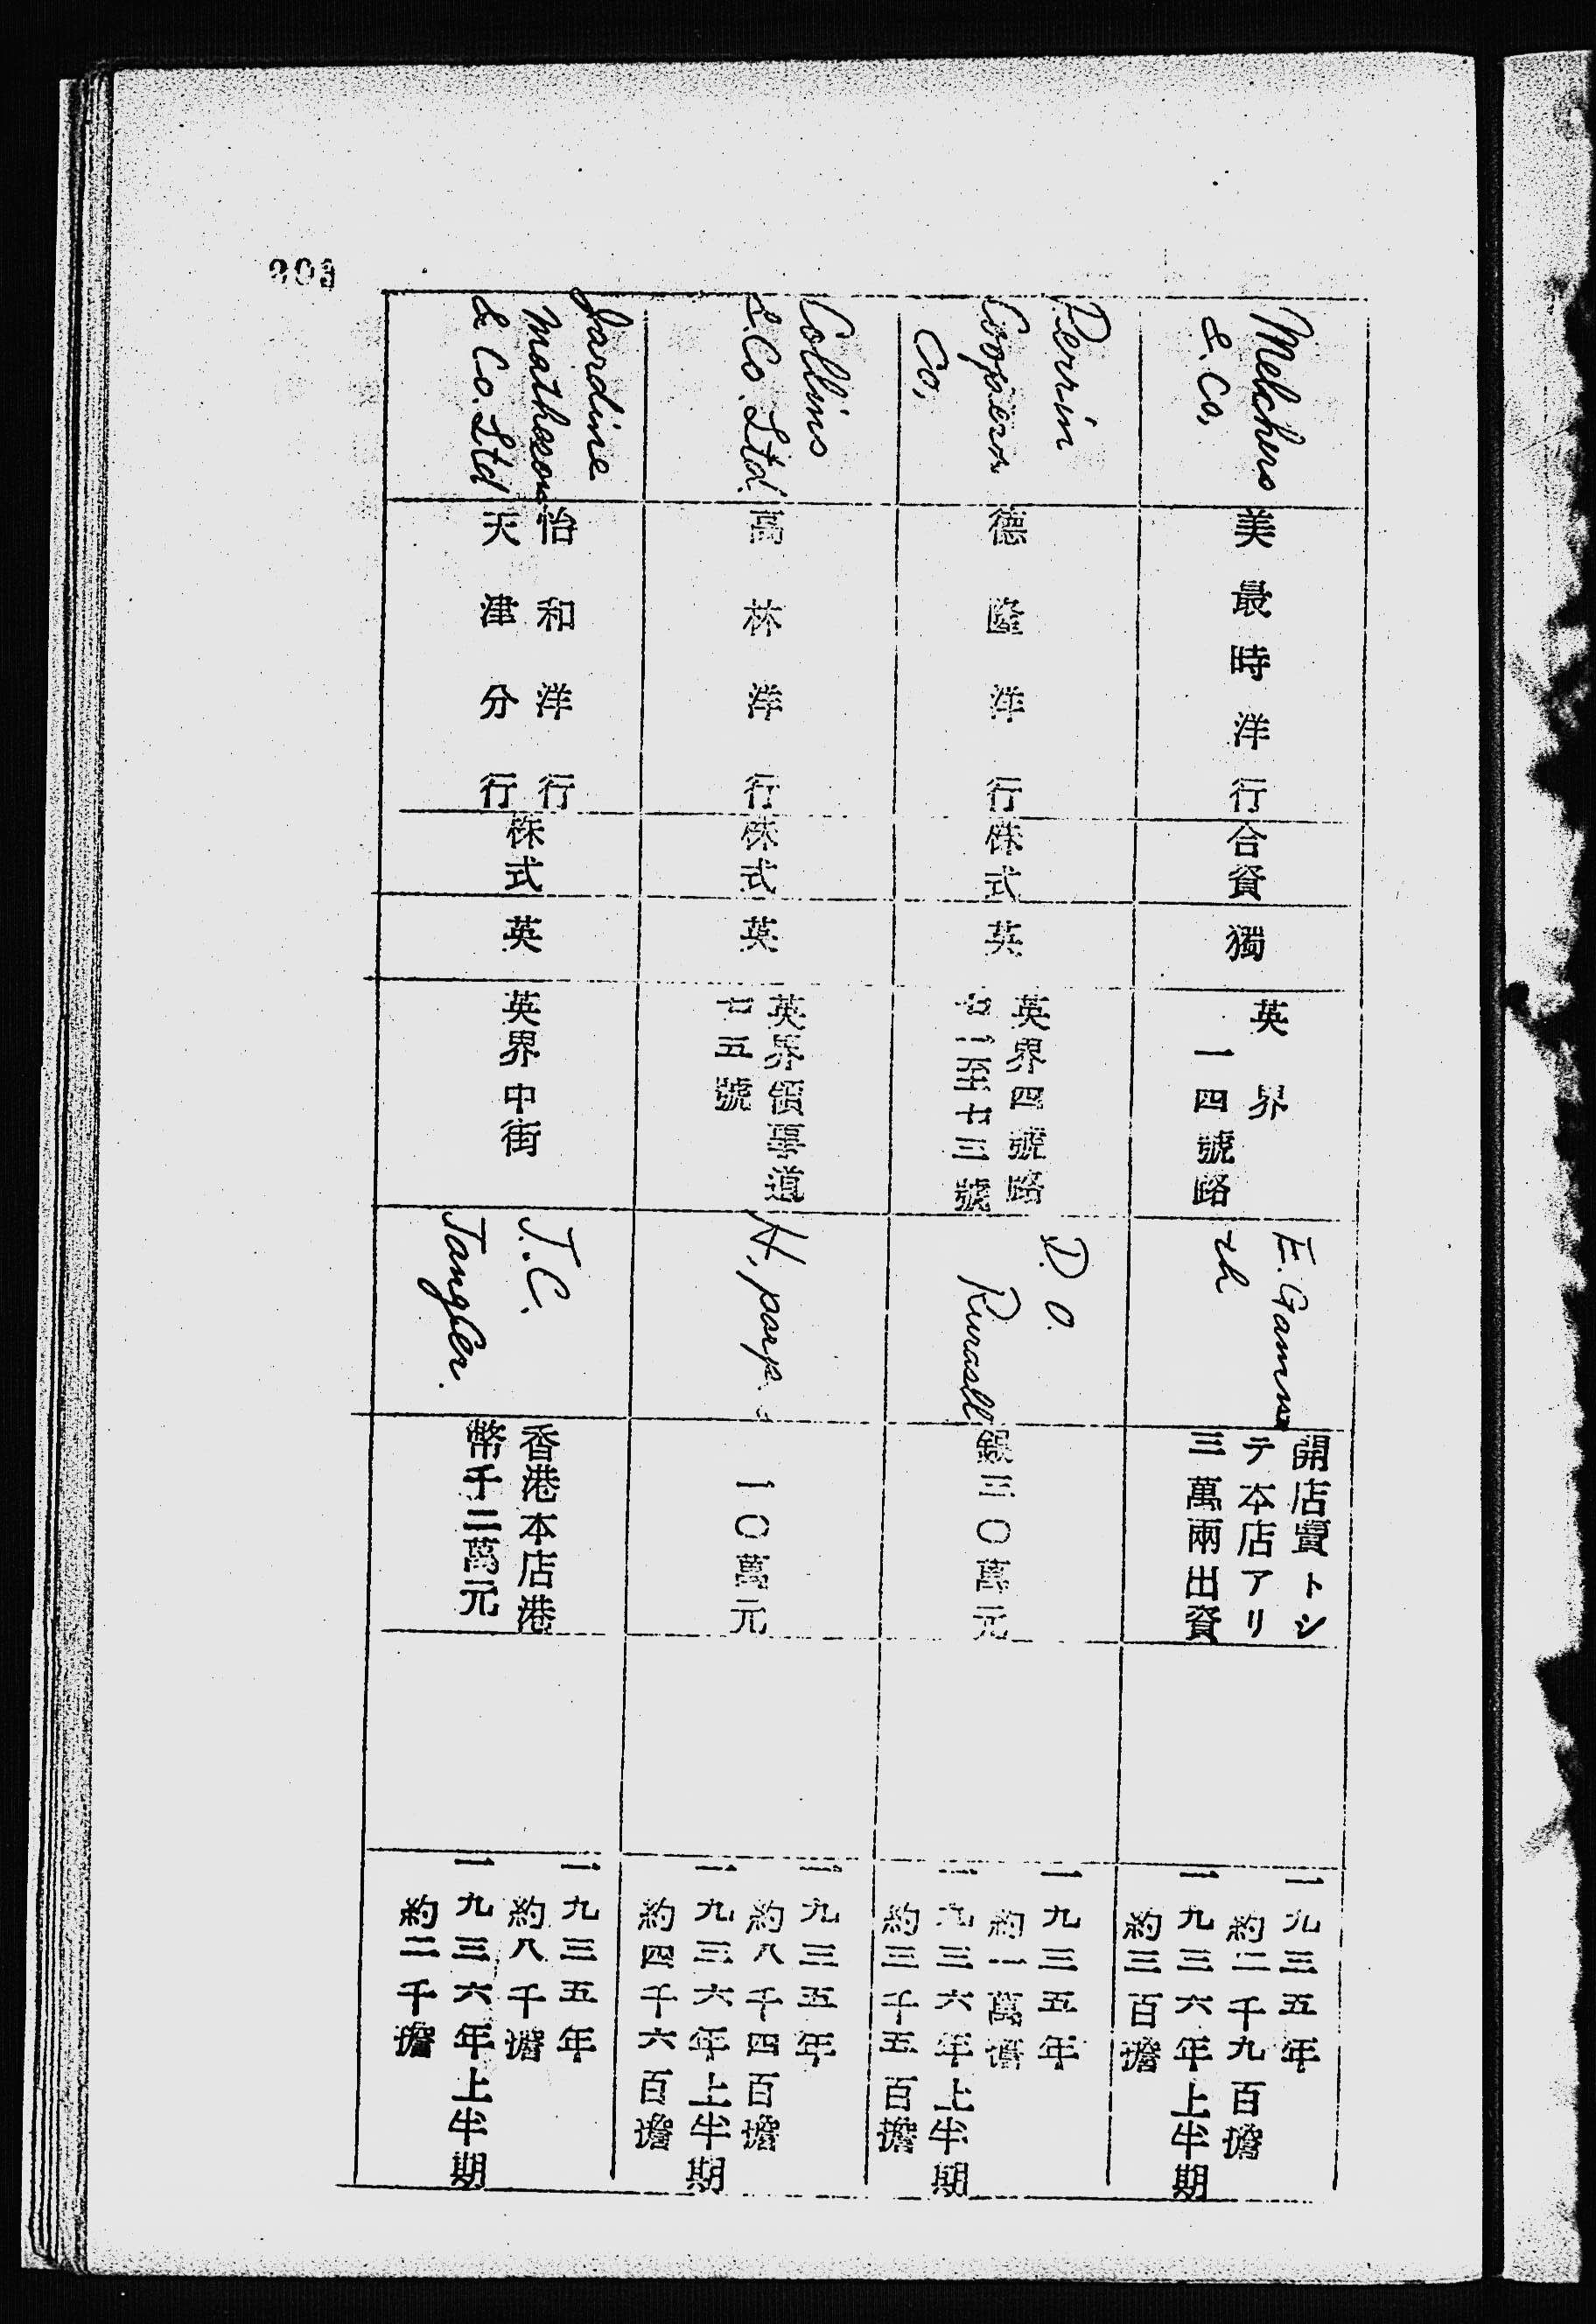 Melchers
& Co,
美最時洋行
合資
獨
英界
一四號路
E. Gamm
th
開店賣トシ
テ本店アリ
三萬兩出資
一九三五年
約二千九百擔
一九三六年上半期
約三百擔
Perrin
Coopers
Co,
德隆洋行
株式
英
英界四號路
廿一至廿三號
D. O.
銀三〇萬元
一九三五年
約一萬擔
一九三六年上半期
約三千五百擔
Collins
& Co. Ltd.
高林洋行
株式
英
英界領事道
廿五號
H. parp.
一〇萬元
一九三五年
約八千四百擔
一九三六年上半期
約四千六百擔
Jardine
Matheson
& Co. Ltd
怡和洋行
天津分行
株式
英
英界中街
J. C.
香港本店港
幣千二萬元
一九三五年
約八千擔
一九三六年上半期
約二千擔